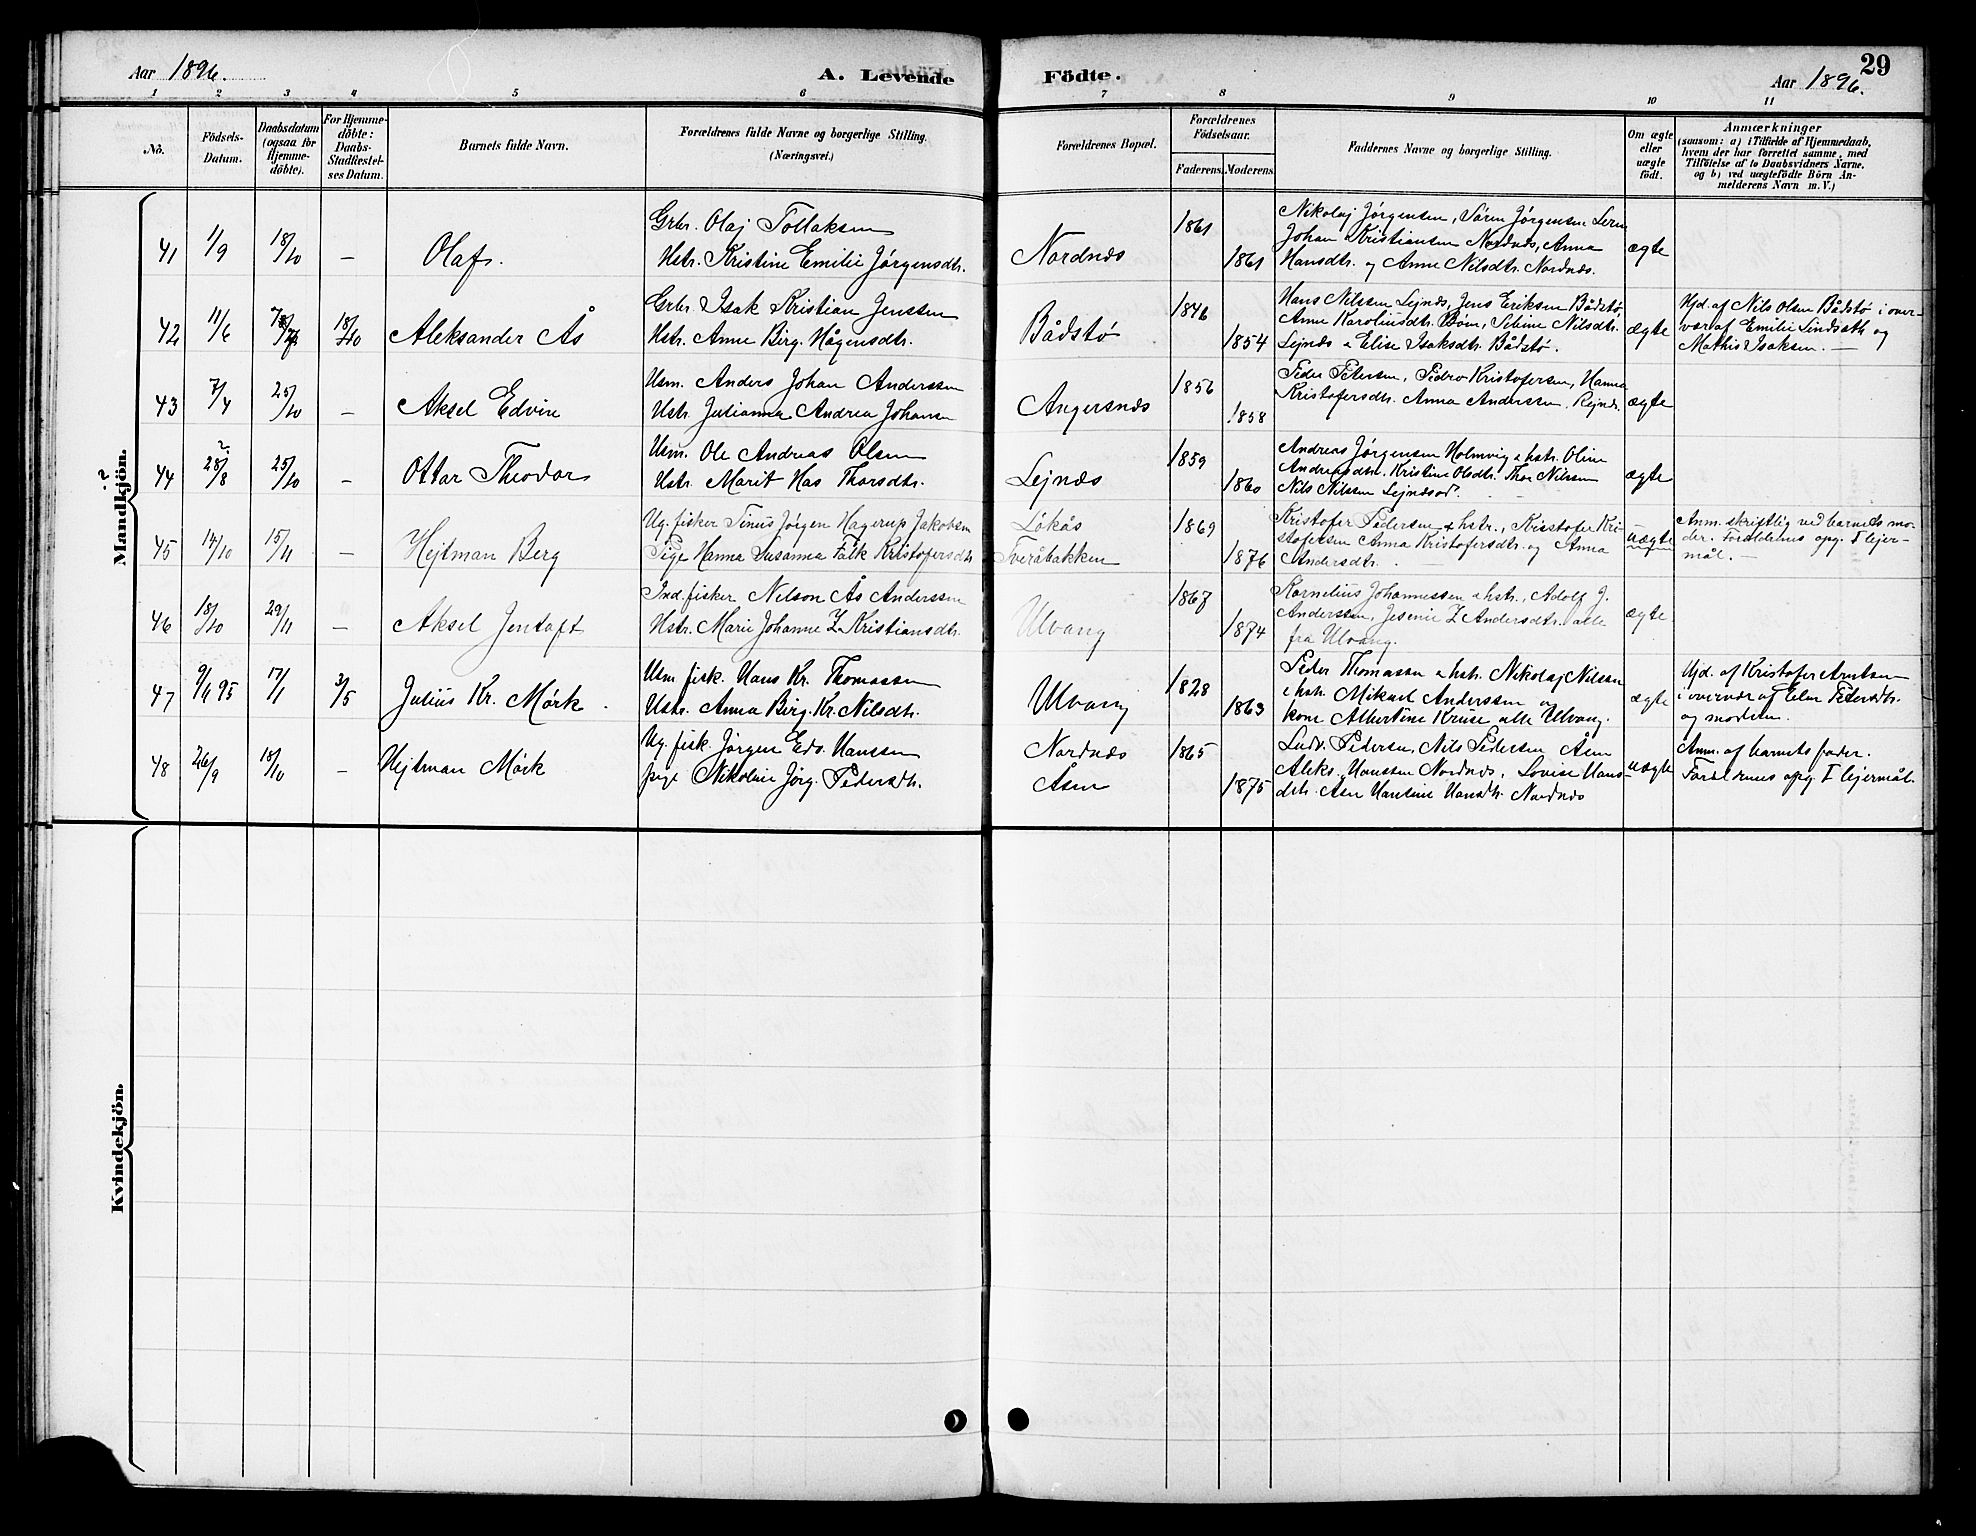 Aar 1896.
A. Levende
Födte.
29
Aar 1896.
1 2 3 4 5 6 7 8 9 10 11
No.
Födsels-
Datum.
Daabsdatum
(ogsaa for
Hjemme-
döbte).
For Hjemme-
döbte:
Daabs-
Stadfæstel-
ses Datum.
Barnets fulde Navn.
Forældrenes fulde Navne og borgerlige Stilling.
(Næringsvei.)
Forældrenes Bopæl.
Forældrenes
Födselsaar.
Faderens. Moderens.
Faddernes Navne og borgerlige Stilling.
Om ægte
eller
uægte
födt.
Anmærkninger
(saasom: a) i Tilfælde af Hjemmedaab,
hvem der har forrettet samme, med
Tilföielse af to Daabsvidners Navne,
og b) ved uægtefödte Börn An-
melderens Navn m. V.)
Mandkjön.
41 11/9 18/10 — Olaf.
Grbr. Olaj Tollaksen
Hstr. Kristine Emilie Jørgensdtr.
Nordnæs
1861
1861
Nikolaj Jørgensen, Søren Jørgensen
Johan Kristiansen Nordnæs, Anna
Hansdtr. og Anne Nilsdtr. Nordnæs.
ægte
42 11/6 18/10 Aleksander Ås
Grbr Isak Kristian Jenssen
Hstr. Anne Berg. Hågensdtr.
Bådstø
1846
1854
Hans Nilssen Lejnæs, Jens Eriksen Bådstø,
Anne Karoliusdtr. Bøm, Seline Nilsdtr.
Lejnæs & Elise Isaksdtr. Bådstø.
ægte
Hjd. af Nils Olsen Bådstø i over-
vær af Emilie Lindseth og
Mathis Isaksen. —
43 7/4 25/10 — Aksel Edvin
Usm. Anders Johan Anderssen
Hstr. Julianna Andrea Johansen
Angersnæs
1856
1858
Peder Petersen, Pedro Kristofersen, Hanna
Kristofersdtr. Anna Anderssen, Rejnes.
ægte
44 28/8 25/10 — Ottar Theodor
Usm. Ole Andreas Olsen
Hstr. Marit Has Thorsdtr.
Lejnæs
1859
1860
Andreas Jørgensen Holmvig & hstr. Oline
Andreasdtr. Kristine Olsdtr. Thor Nilssen
Nils Nilssen Lejnæsod.
ægte
45 14/10 15/11 — Hejtman Berg
Ug. fisker Tinus Jørgen Hagerup Jakobsen
Pige Hanna Susanna Falk Kristofersdtr
Løkås
Tveråbakken
1869
1876
Kristofer Pedersen & hstr., Kristofer Kri-
stofersen Anna Kristofersdtr. og Anna
Andersdtr. —
uægte
Anm. skriftlig ved barnets mo-
der. Forældrenes opg. I lejer-
mål. —
46 18/10 29/11 — Aksel Jentoft
Ind. fisker Nelson Ås Anderssen
Hstr. Marie Johanne Z. Kristiansdtr.
Ulvang
1867
1874
Kornelius Johannessen & hstr., Adolf J.
Anderssen, Jesenie Z Andersdtr. alle
fra Ulvang.
ægte
47 9/4 95 17/1 3/5 Julius Kr. Mörk.
Usm fisk. Hans Kr. Thomassen
Hstr. Anna Berg. Kr. Nilsdtr.
Ulvang
1828
1863
Peder Thomassen & hstr. Nikolaj Nilssen
& hstr. Mikael Anderssen og
kone Albertine Kruse alle Ulvang.
ægte
Hjd. af Kristofer Arntsen
i overvær af Elen Pedersdtr.
og moderen.
48 26/9 18/10 — Hejtman Mörk
Ug. fisk. Jørgen Edv. Hanssen
pige Nikoline Jørg. Pedersdtr.
Nordnæs
Åsen
1865
1875
Ludv. Pedersen, Nils Pedersen Åsen
Aleks. Hanssen Nordnæs, Lovise Hans-
dtr. Åsen Hansine Hansdtr. Nordnæs
uægte
Anm. af barnets fader.
Forældrenes opg. I lejermål.
Kvindekjön.